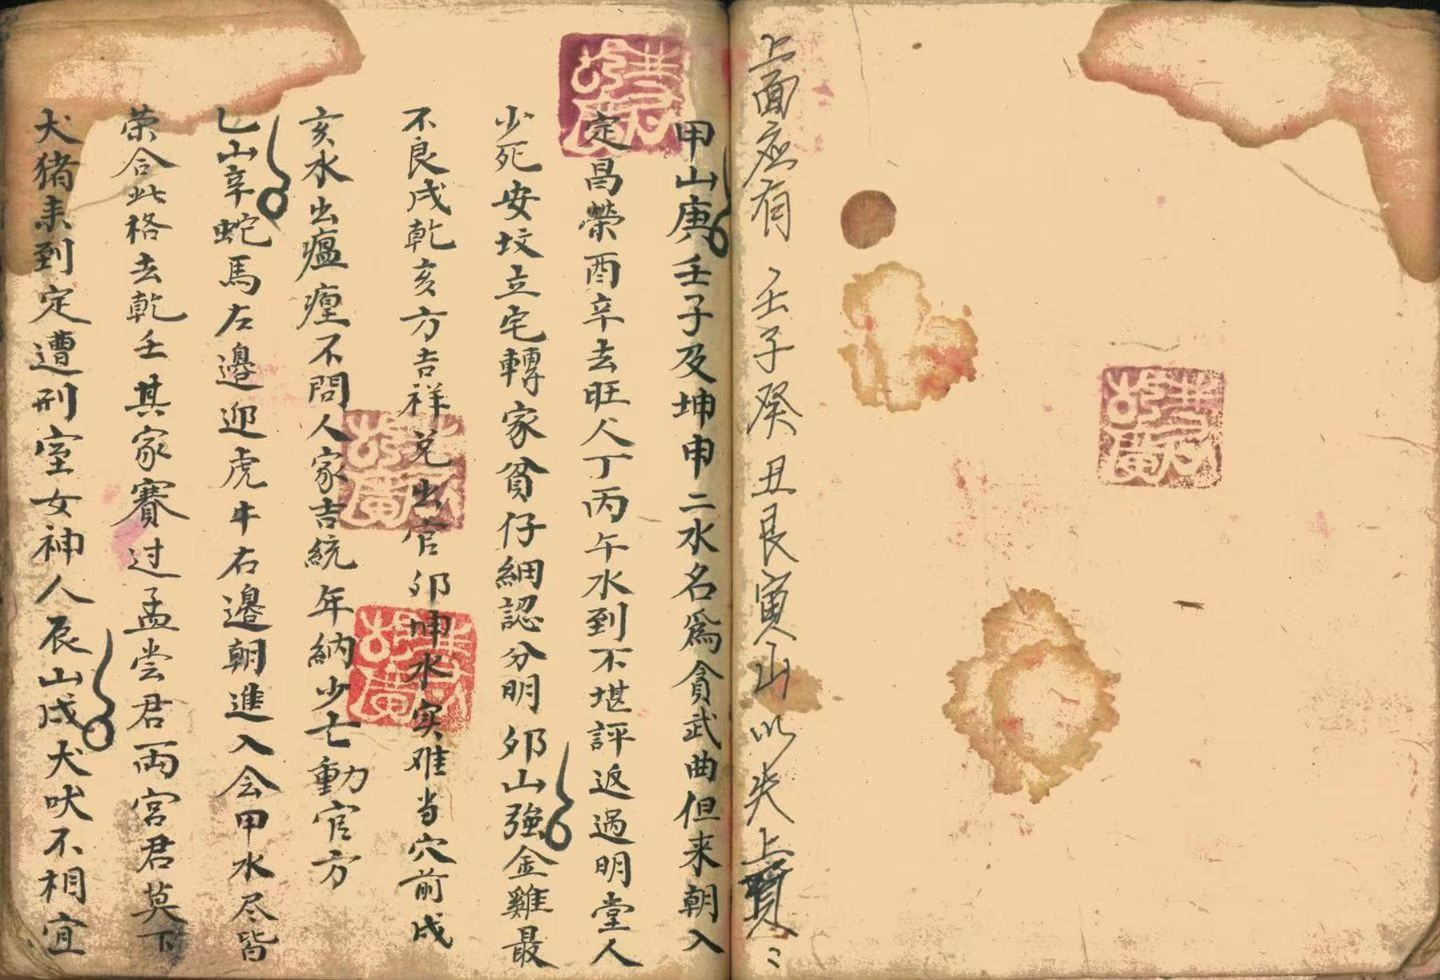 上面应有 壬子癸 丑艮寅山 以失上頁
甲山庚壬子及坤申二水名爲貪武曲但来朝入
定昌榮酉辛去旺人丁丙午水到不堪評返過明堂人
少死安坟立宅轉家貧仔細認分明卯山強金雞最
不良戌乾亥方吉祥兌出官卯坤水实难当穴前戌
亥水出瘟㾮不問人家吉統年納少亡動官方
乙山辛蛇馬左邊迎虎牛右邊朝進入会甲水尽皆
荣合此格去乾壬其家賽过孟尝君両宮君莫下
犬猪来到定遭刑室女神人辰山戌犬吠不相宜